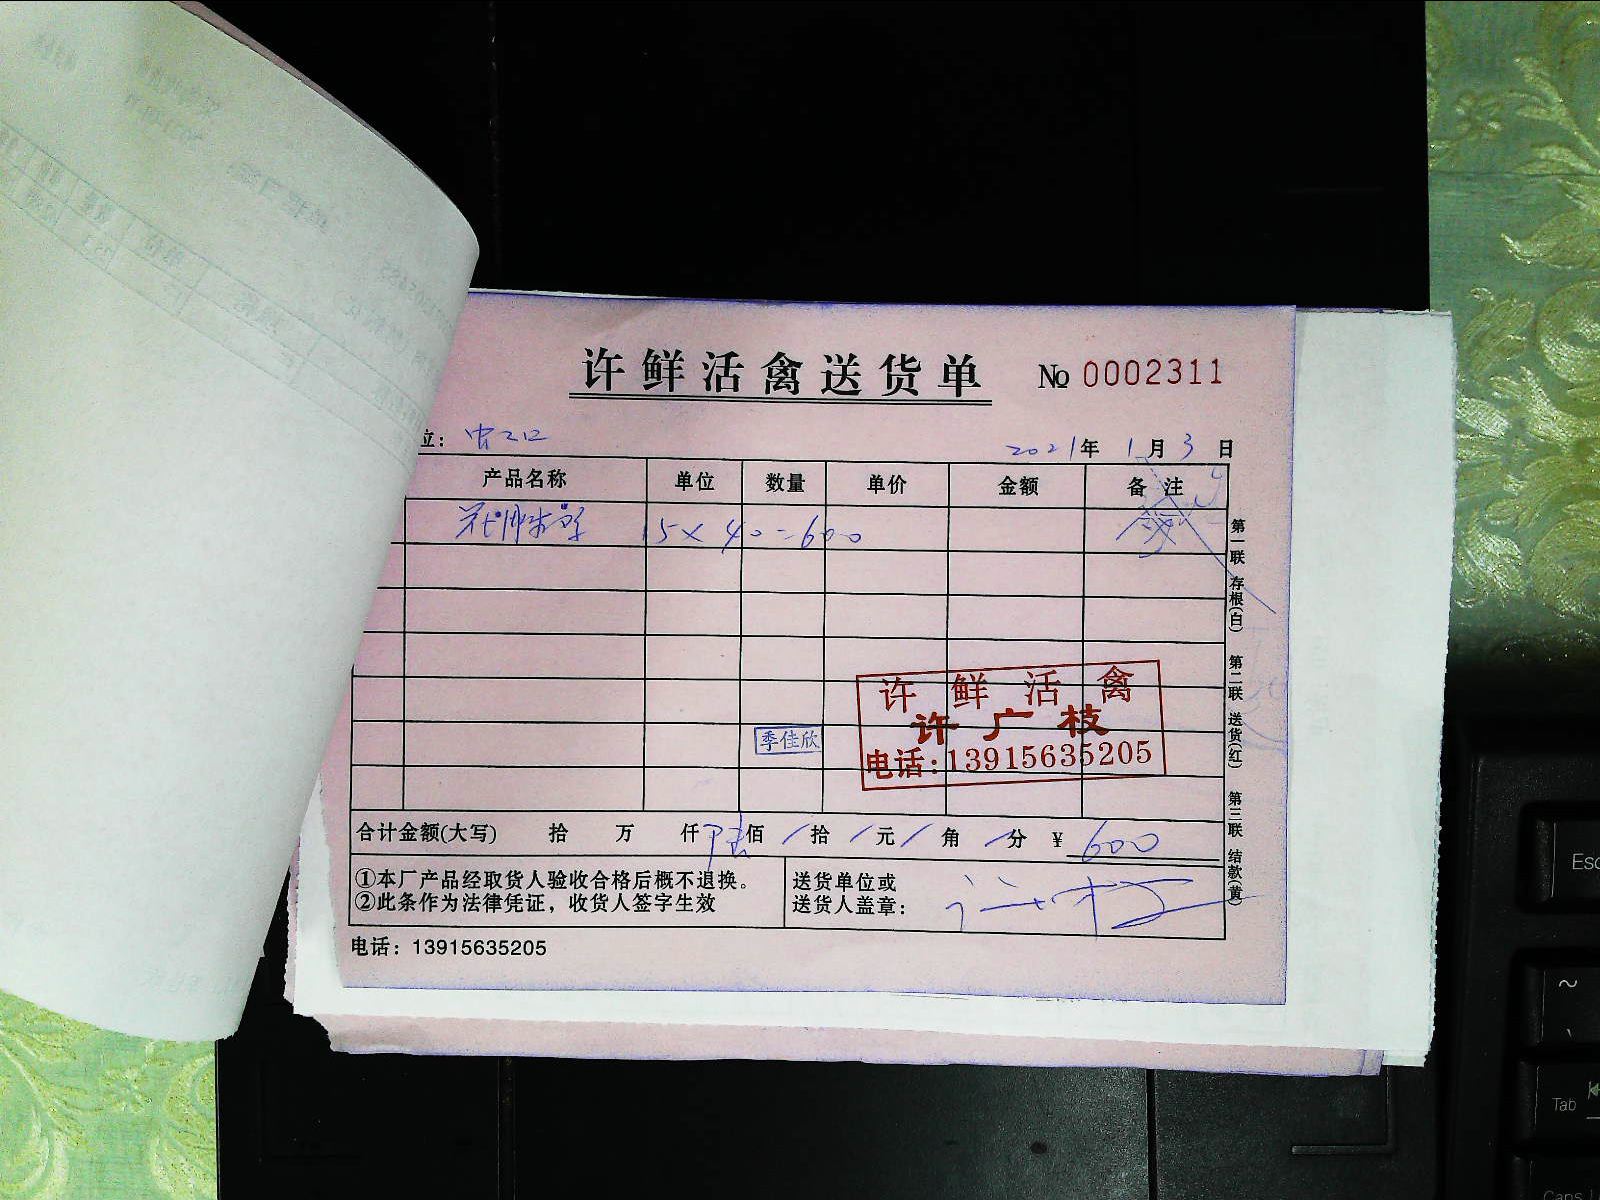 许鲜活禽送货单 № 0002311
立：
2021年 1月 3日
产品名称 单位 数量 单价 金额 备 注
15×40=600
第一联 存根(白) 第二联 送货(红) 第三联 结款(黄)
许鲜活禽
许广枝
季佳欣
电话:13915635205
合计金额(大写) 拾 万 仟 陆佰 / 拾 / 元 / 角 / 分 ¥ 600
①本厂产品经取货人验收合格后概不退换。
②此条作为法律凭证，收货人签字生效
送货单位或
送货人盖章：
电话：13915635205
Esc
~
Tab
Caps